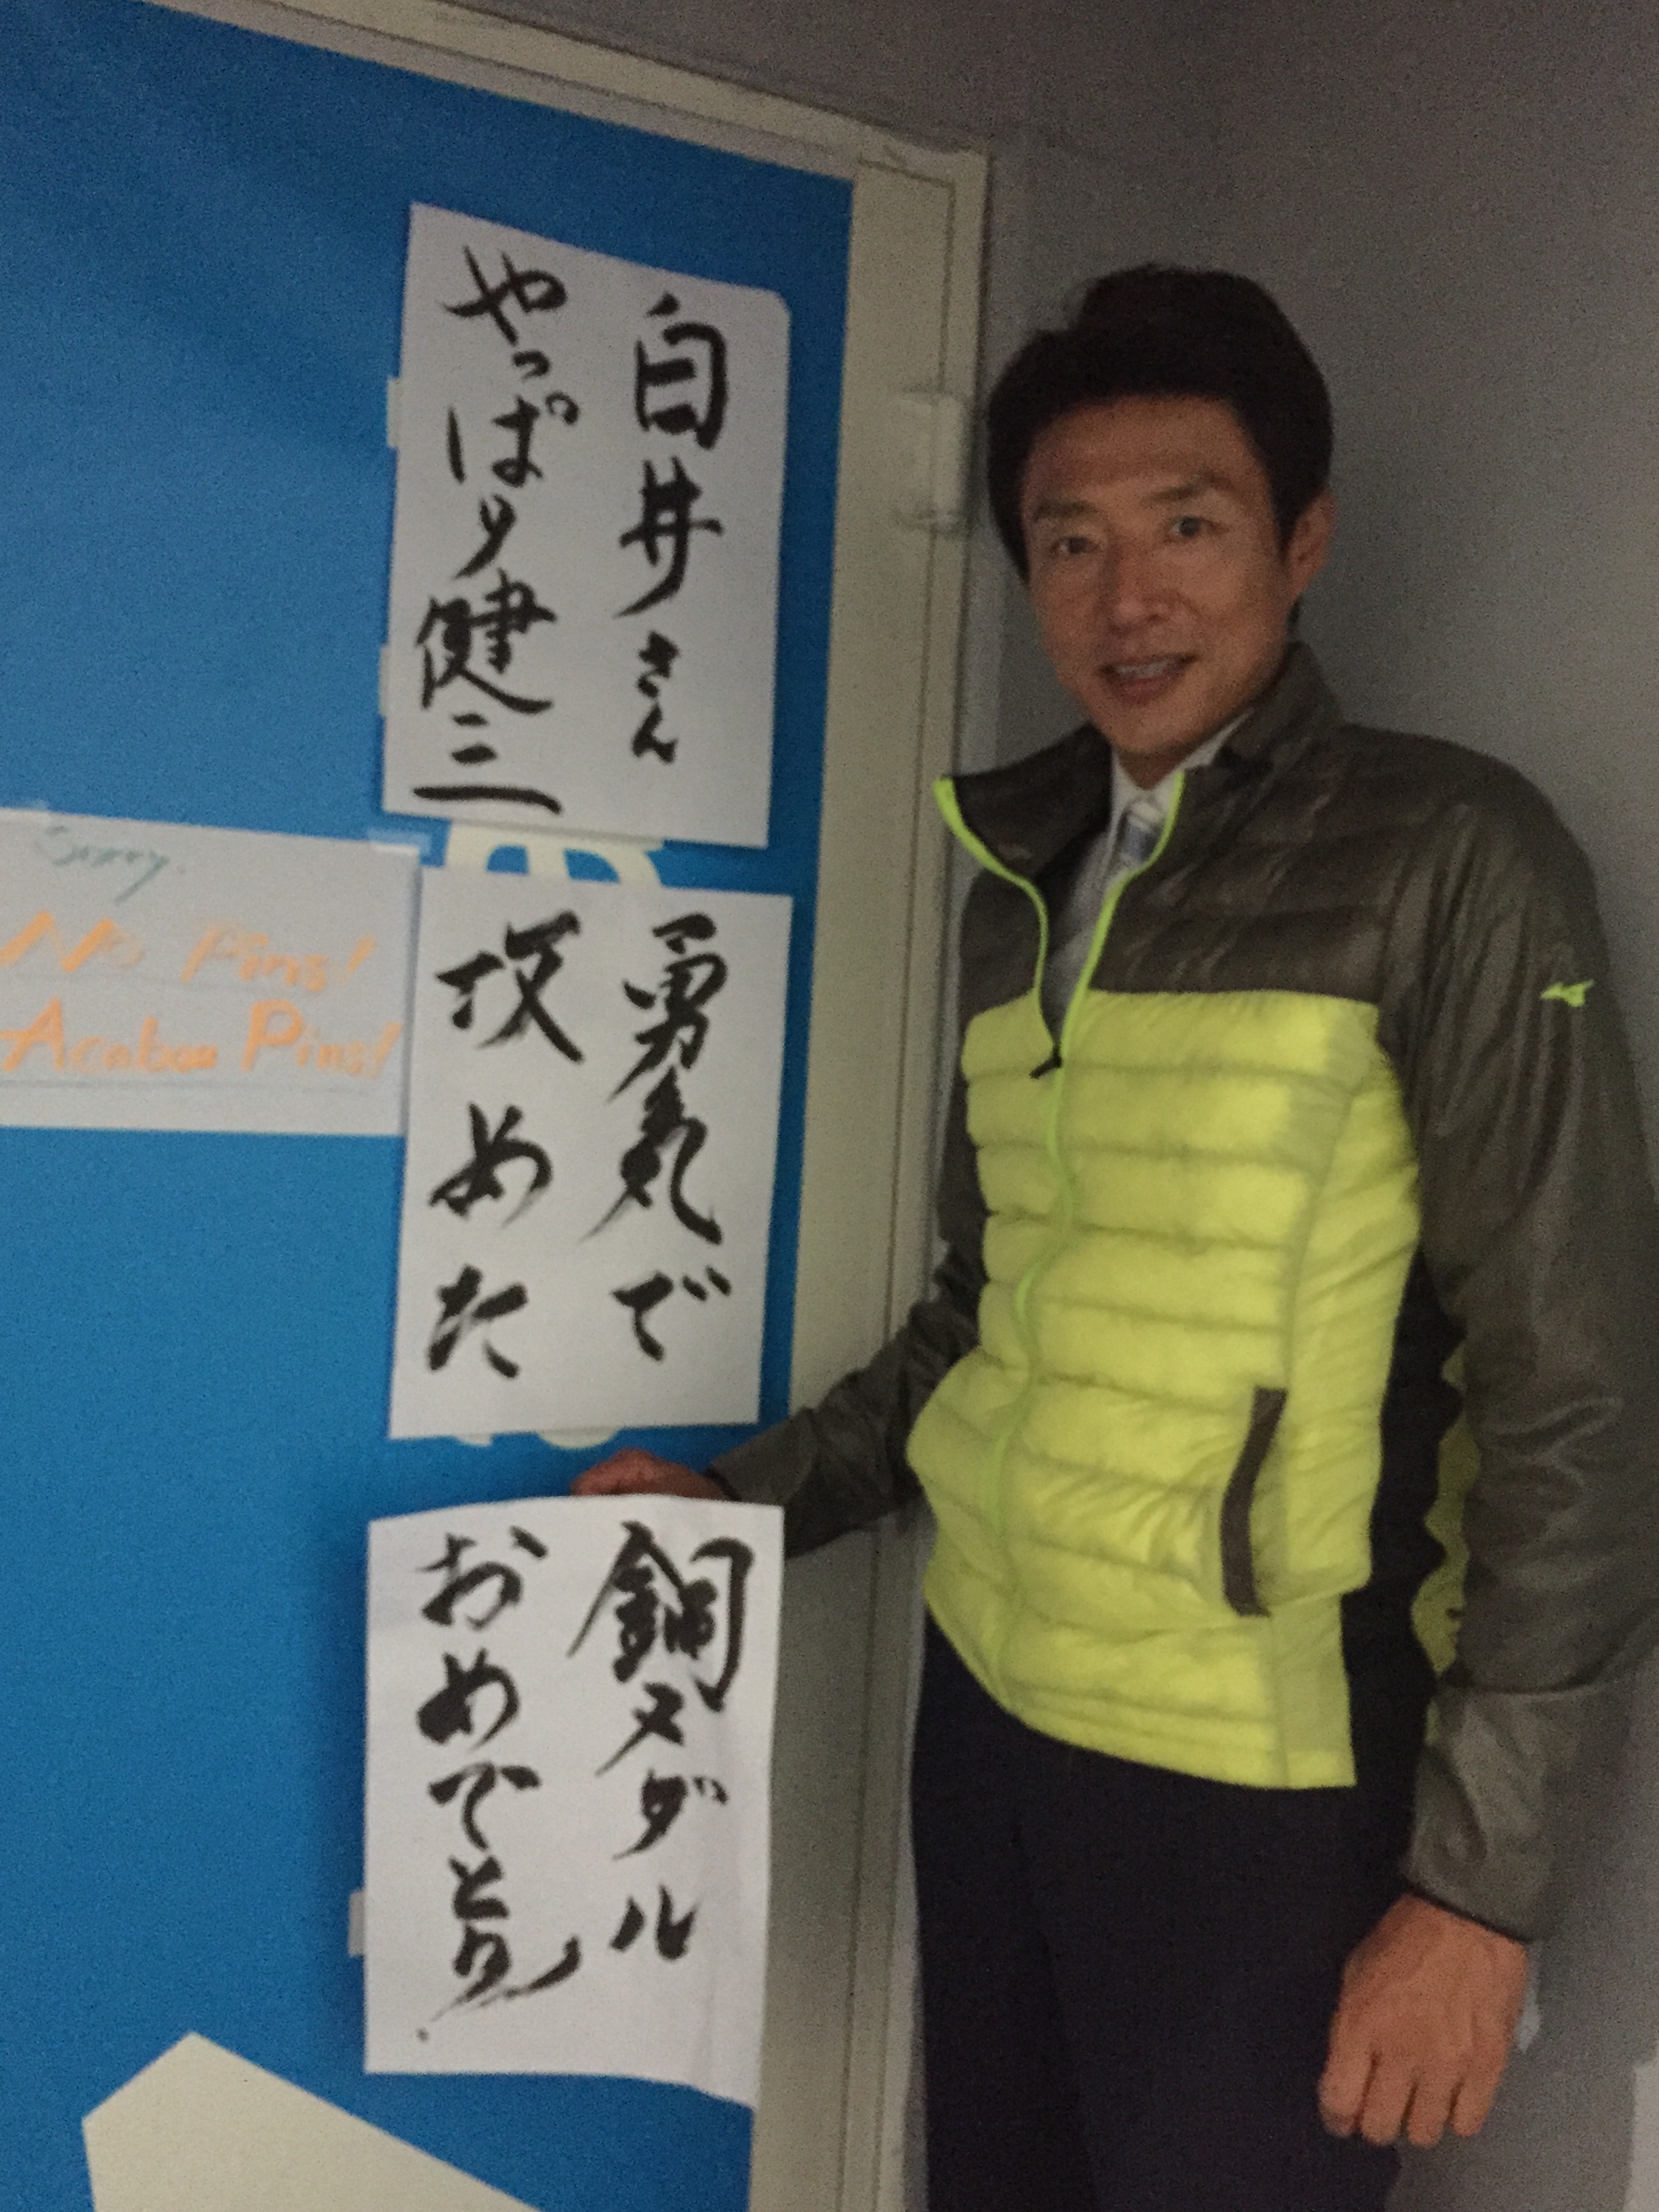 白井さん
やっぱり健三
勇気で
攻めた
銅メダル
おめでとう
Sorry.
No Pins!
Acabou Pins!